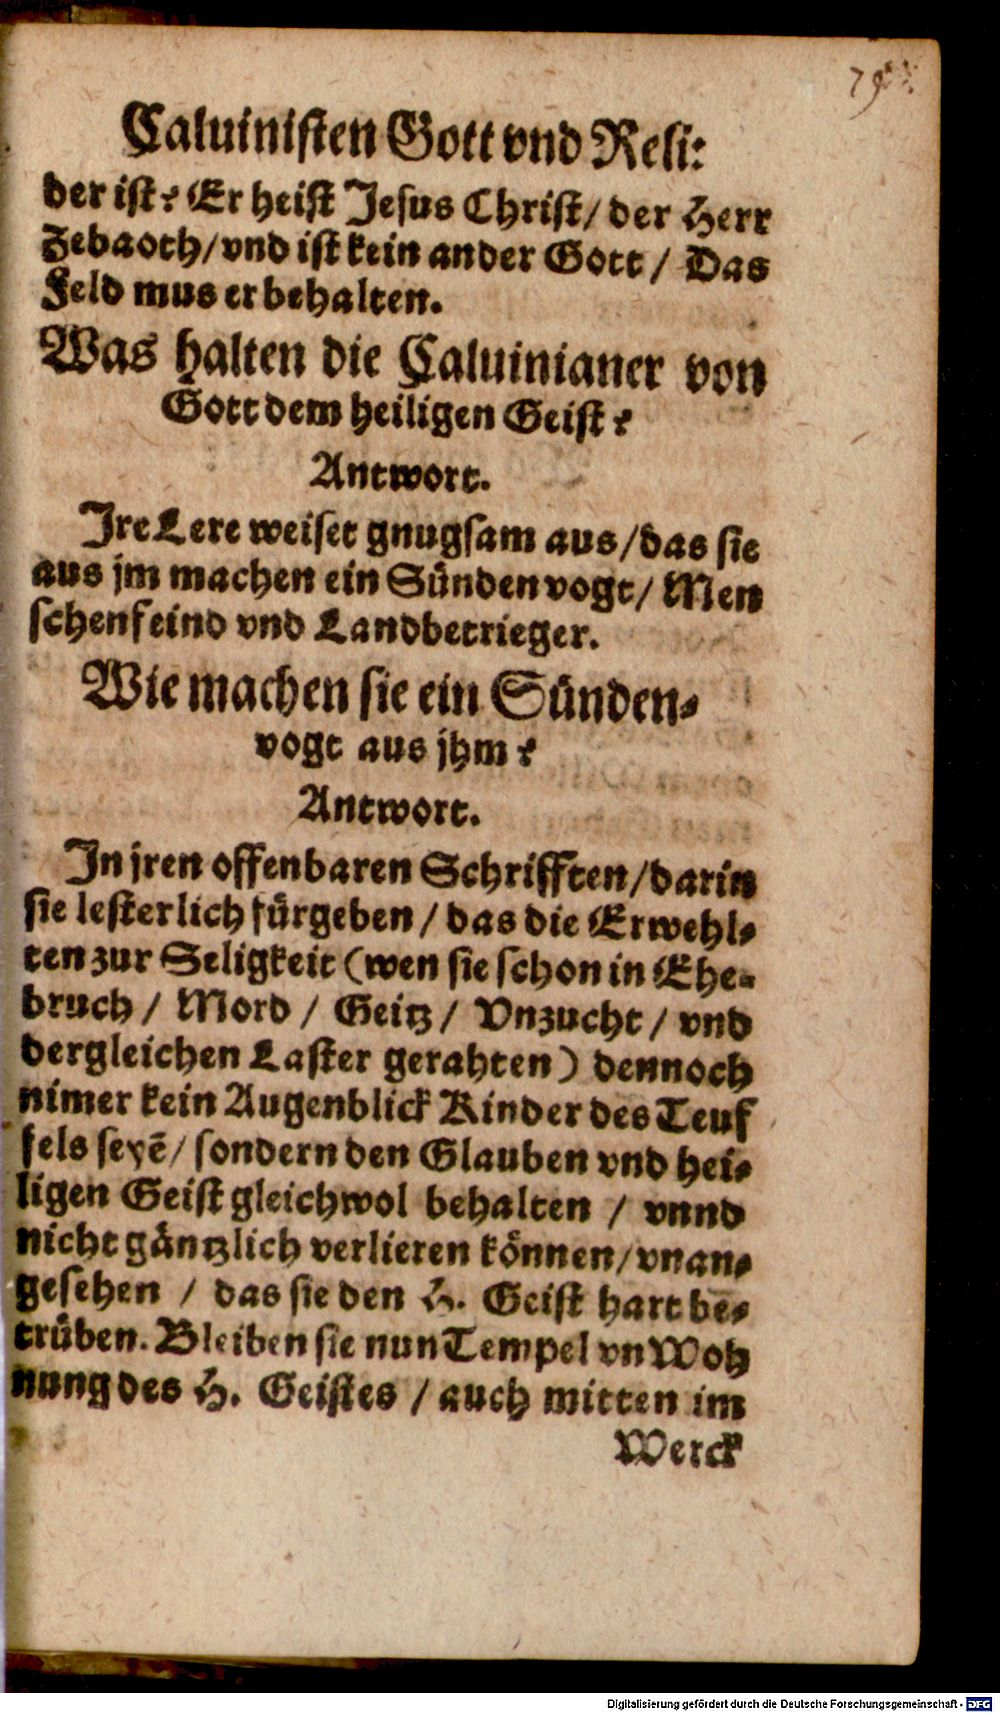 Caluinisten Gott vnd Reli:
der ist? Er heist Jesus Christ/ der Herr
Zebaoth/ vnd ist kein ander Gott / Das
Feld mus er behalten.
Was halten die Caluinianer von
Gott dem heiligen Geist?
Antwort.
Jre Lere weiset gnugsam aus/das sie
aus jm machen ein Sünden vogt/ Men
schenfeind vnd Landbetrieger.
Wie machen sie ein Sünden-
vogt aus jhm?
Antwort.
Jn jren offenbaren Schrifften/darin
sie lesterlich fürgeben / das die Erwehl-
ten zur Seligkeit (wen sie schon in Ehe-
bruch / Mord / Geitz / Vnzucht / vnd
dergleichen Laster gerahten) dennoch
nimer kein Augenblick Kinder des Teuf
fels seyē/ sondern den Glauben vnd hei-
ligen Geist gleichwol behalten / vnnd
nicht gäntzlich verlieren können/ vnan-
gesehen / das sie den H. Geist hart be-
trüben. Bleiben sie nun Tempel vn Woh
nung des H. Geistes / auch mitten im
Werck
Digitalisierung gefördert durch die Deutsche Forschungsgemeinschaft - DFG